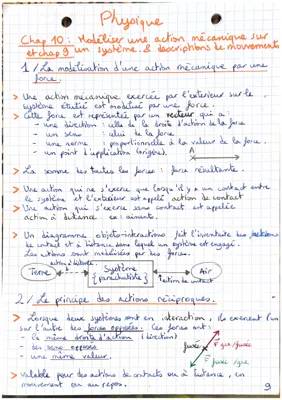 Physique
Chap 10 : Modéliser une action mécanique sur
et chap 9 un système. & descriptions de mouvements
1/ La modélisation d'une action mécanique par une
force.
> Une action mécanique exercée par l'extérieur sur le
système étudié est modélisé par une force.
> Cette force est représentée par un vecteur qui a :
- une direction : celle de la droite d'action de la force
- un sens : celui de la force
- une norme : proportionnelle à la valeur de la force.
- un point d'application (origine). A
> La somme des toutes les forces : force résultante.
> Une action qui ne s'exerce que lorsqu'il y a un contact entre
le système et l'extérieur est appelé action de contact
> Une action qui s'exerce sans contact est appelée
action à distance. ex : aimants.
> Un diagramme objets-interactions fait l'inventaire des
de contact et à distance dans lequel un système est engagé.
Les actions sont modélisées par des forces.
action à distance
Terre Système (parachutiste) Air
action de contact
2/ Le principe des actions réciproques.
> Lorsque deux systèmes sont en interaction, ils exercent l'un
sur l'autre des forces opposées. Ces forces ont :
- la même droite d'action (direction)
- des sens opposés
- une même valeur.
fusée F gaz/fusée
F fusée/gaz
> Valable pour des actions de contacts ou à distance, en
mouvement ou au repos.
9